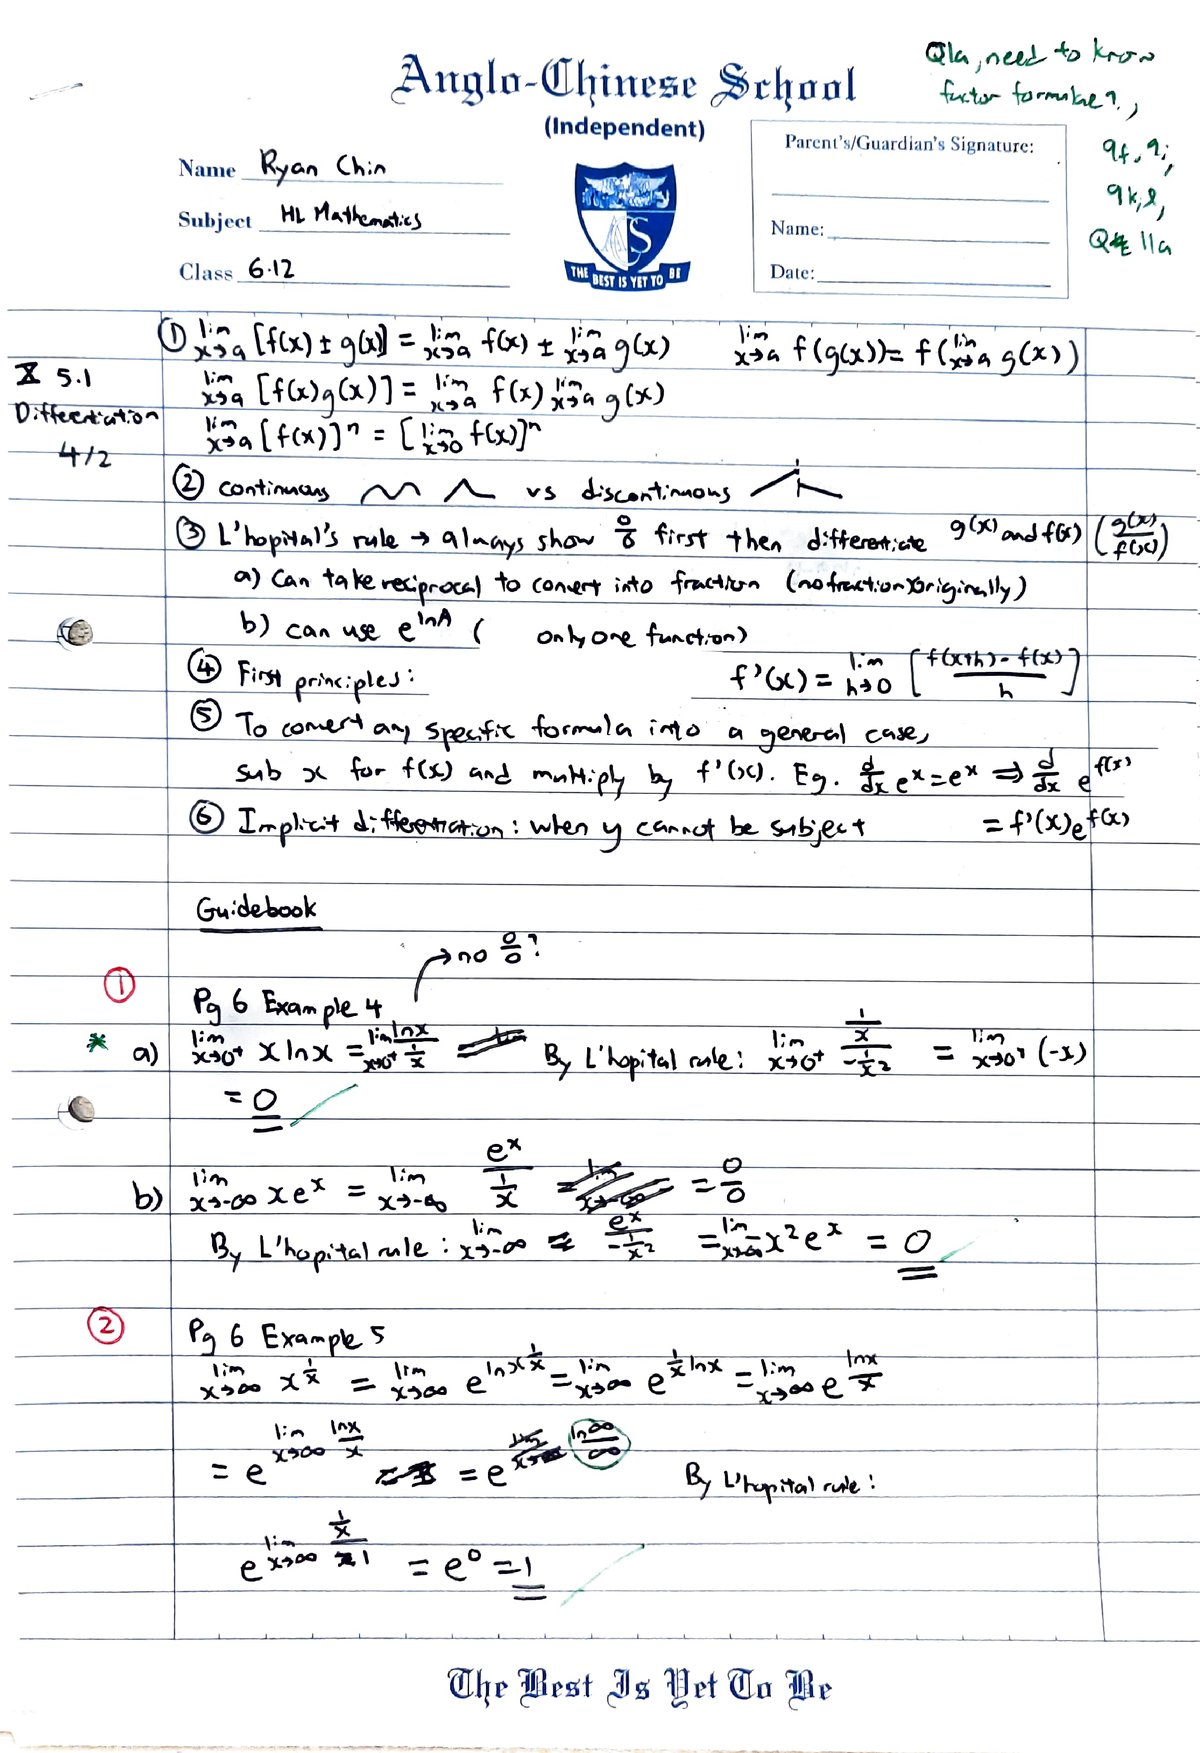 Q1a, need to know
factor formulae?,
9f, 9i,
9k, l,
Q 11a
Anglo-Chinese School
(Independent)
Name Ryan Chin
Subject HL Mathematics
Class 6.12
THE BEST IS YET TO BE
Parent's/Guardian's Signature:
Name:
Date:
X 5.1
Differentiation
4/2
① lim x→a [f(x) ± g(x)] = lim x→a f(x) ± lim x→a g(x) lim x→a f(g(x)) = f(lim x→a g(x))
lim x→a [f(x)g(x)] = lim x→a f(x) lim x→a g(x)
lim x→a [f(x)]^n = [lim x→0 f(x)]^n
② continuous vs discontinuous
③ L'hopital's rule → always show 0/0 first then differentiate g(x) and f(x) (g(x)/f(x))
a) Can take reciprocal to convert into fraction (no fraction originally)
b) can use e^lnA ( only one function)
④ First principles: f'(x) = lim h→0 [f(x+h) - f(x)/h]
⑤ To convert any specific formula into a general case,
sub x for f(x) and multiply by f'(x). Eg. d/dx e^x = e^x ⇒ d/dx e^f(x)
= f'(x)e^f(x)
⑥ Implicit differentiation: when y cannot be subject
Guidebook
→ no 0/0?
① Pg 6 Example 4
* a) lim x→0+ x ln x = lim x→0+ lnx / 1/x By L'hopital rule: lim x→0+ 1/x / -1/x² = lim x→0+ (-x)
= 0
b) lim x→-∞ x e^x = lim x→-∞ e^x / 1/x = 0/0
By L'hopital rule: lim x→-∞ e^x / -1/x² = lim x→-∞ -x² e^x = 0
② Pg 6 Example 5
lim x→∞ x^1/x = lim x→∞ e^lnx^1/x = lim x→∞ e^1/x lnx = lim x→∞ e^lnx/x
= e^lim x→∞ lnx/x = e^ln∞/∞ By L'hopital rule:
e^lim x→∞ 1/x / 1 = e^0 = 1
The Best Is Yet To Be